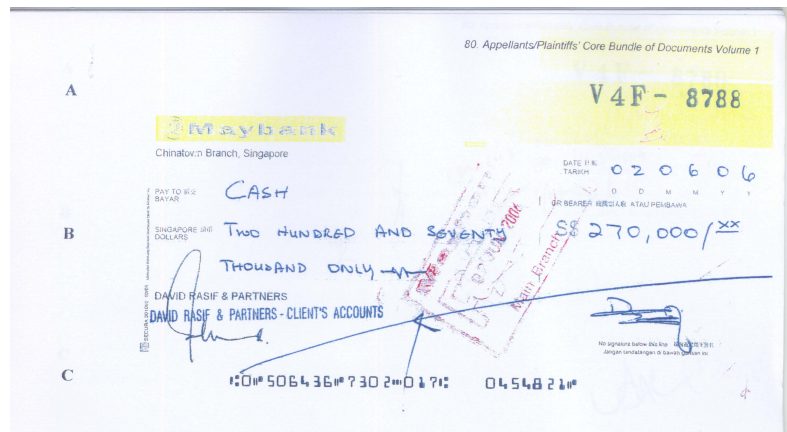 80. Appellants/Plaintiffs' Core Bundle of Documents Volume 1
A
V4F - 8788
Maybank
Chinatown Branch, Singapore
DATE 日期
TARIKH 020606
D D M M Y Y
PAY TO
BAYAR CASH
OR BEARER ATAU PEMBAWA
B
SINGAPORE
DOLLARS TWO HUNDRED AND SEVENTY
S$ 270,000/xx
THOUSAND ONLY
JUN 2006
Main Branch
DAVID RASIF & PARTNERS
DAVID RASIF & PARTNERS - CLIENT'S ACCOUNTS
No signature below this line
Jangan tandatangan di bawah garisan ini
C
⑆0⑈506436⑈7302⑉017⑆ 0454821⑈